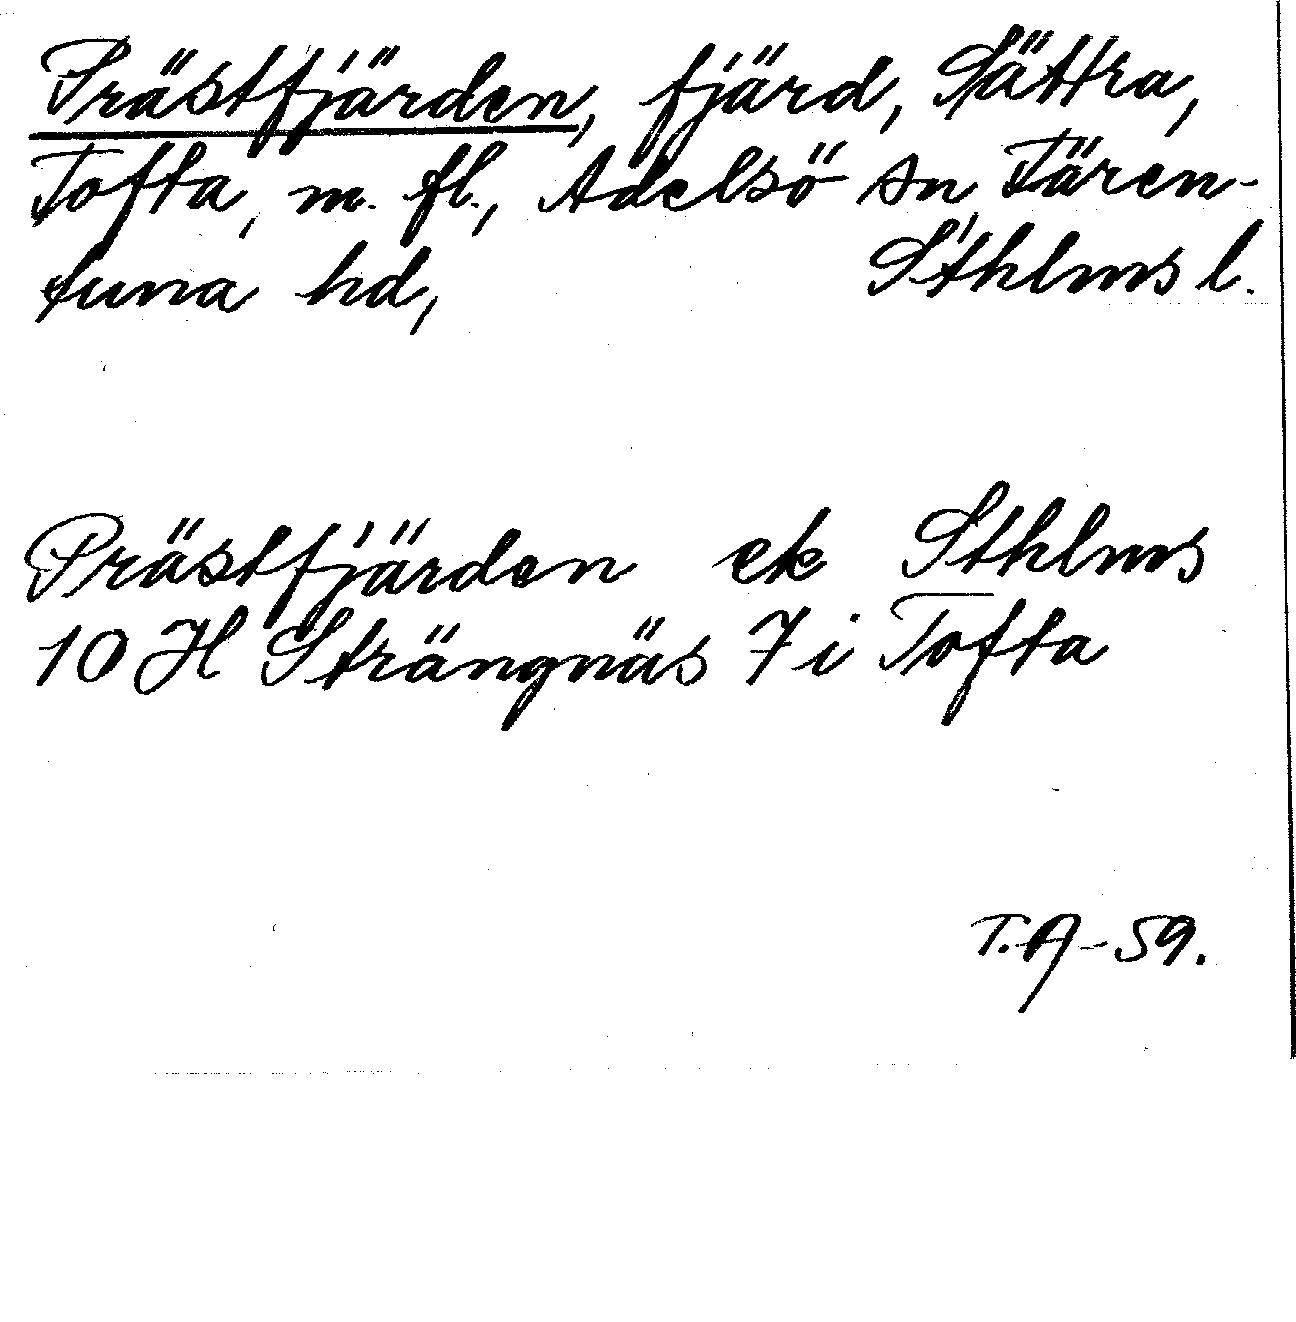 Prästfjärden, fjärd, Sättra,
Tofta, m. fl., Adelsö sn Fären-
tuna hd, Sthlms l.
Prästfjärden ek Sthlms
10 H Strängnäs 7 i Tofta
T.A-59.